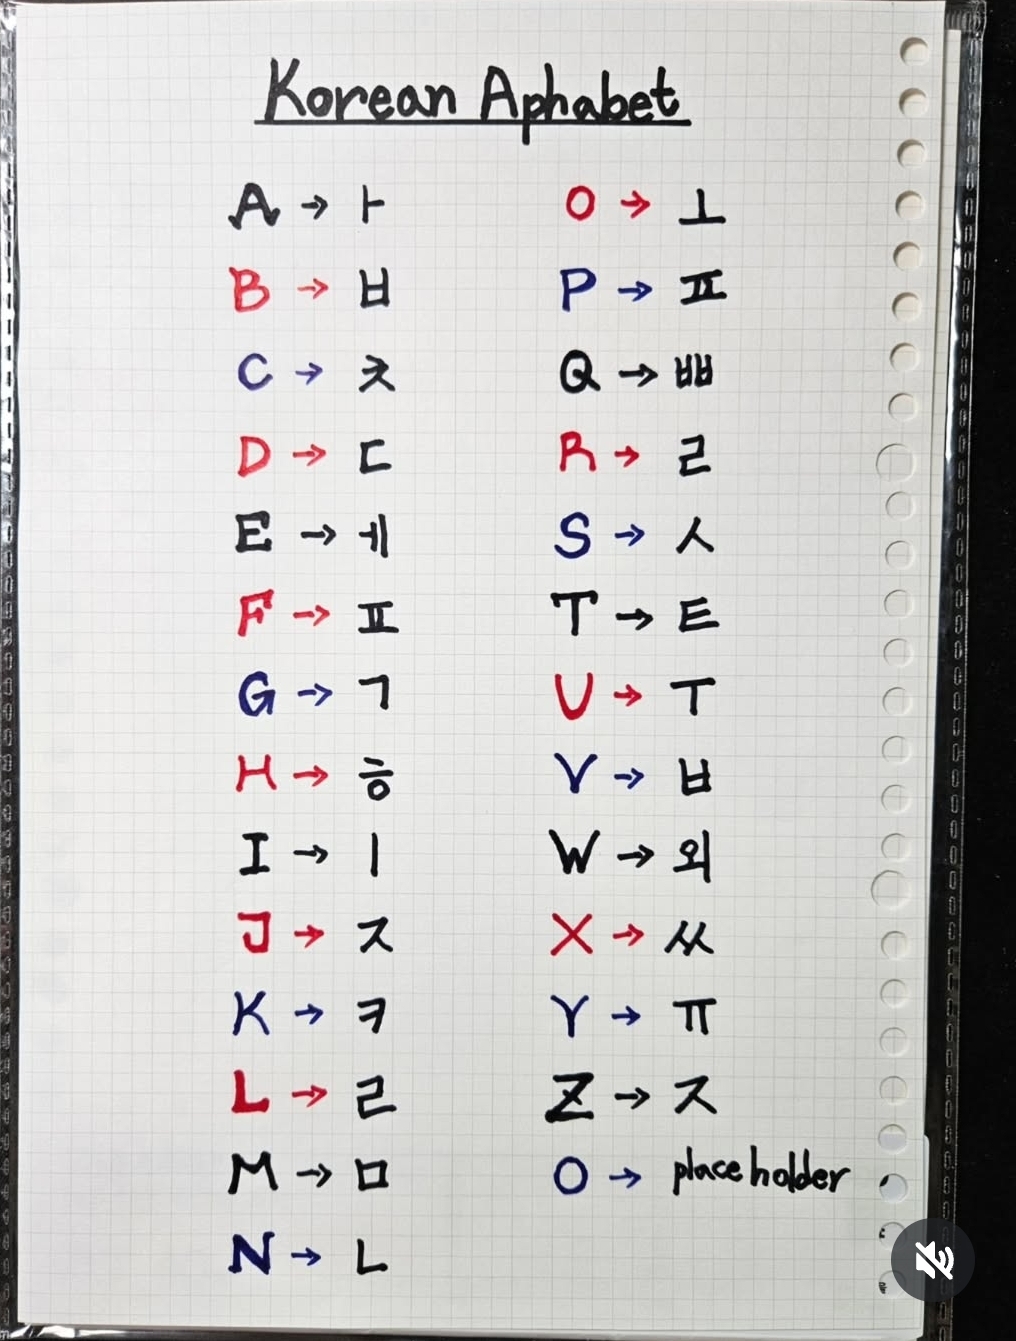 Korean Aphabet
A → ㅏ
B → ㅂ
C → ㅊ
D → ㄷ
E → ㅔ
F → ㅍ
G → ㄱ
H → ㅎ
I → ㅣ
J → ㅈ
K → ㅋ
L → ㄹ
M → ㅁ
N → ㄴ
O → ㅗ
P → ㅍ
Q → ㅃ
R → ㄹ
S → ㅅ
T → ㅌ
U → ㅜ
V → ㅂ
W → 외
X → ㅆ
Y → ㅠ
Z → ㅈ
O → place holder